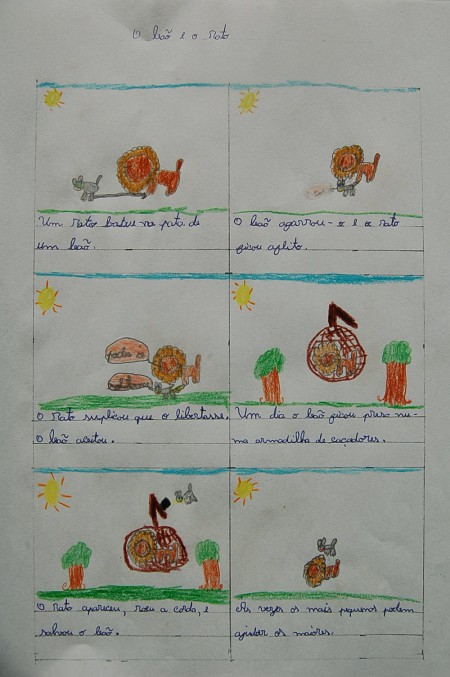 O leão e o rato
Um rato bateu na pata de
um leão.
O leão agarrou-o e o rato
ficou aflito.
O rato suplicou que o libertasse.
O leão aceitou.
Um dia o leão ficou preso nu-
ma armadilha de caçadores.
O rato apareceu, roeu a corda, e
salvou o leão.
As vezes os mais pequenos podem
ajudar os maiores.